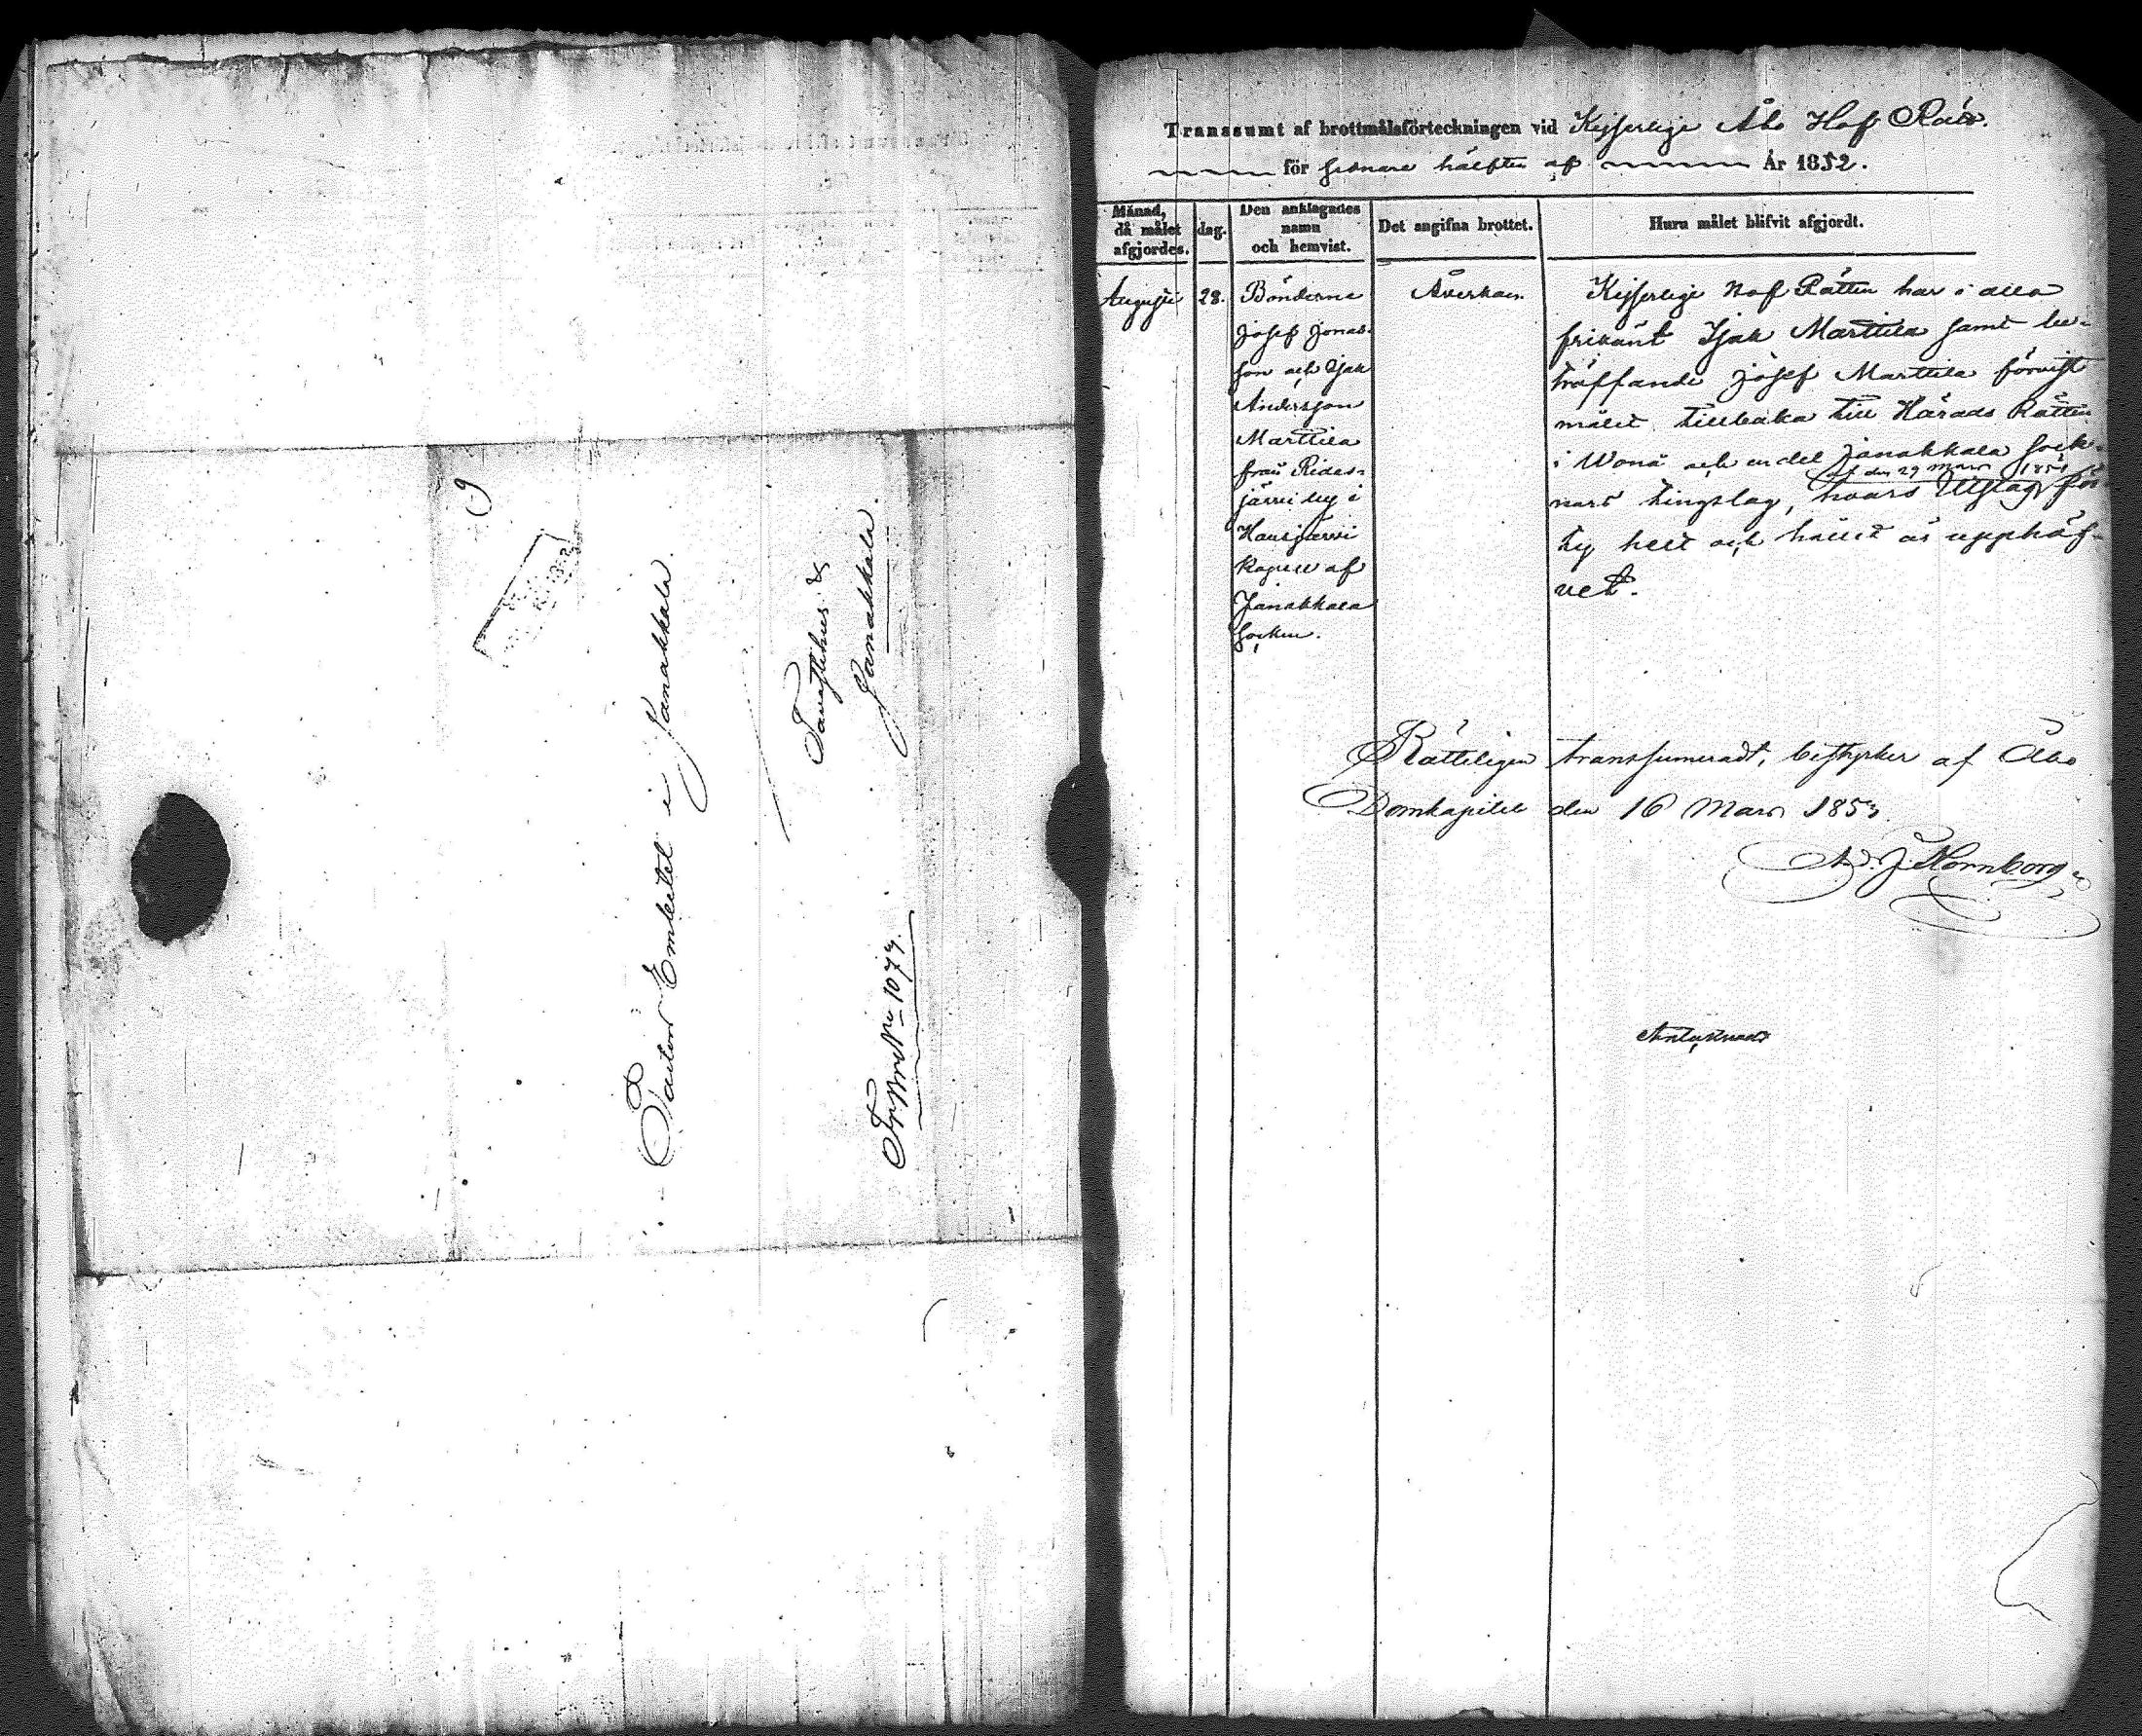 Pastors Embetet i Janakkala.
Tavastehus &
Janakkala.
Transsumt af brottmålsförteckningen vid Kejserlige Åbo Hof Rätt.
för sednare hälften af År 1852.
Månad, då målet afgjordes.
dag.
Den anklagades namn och hemvist.
Det angifna brottet.
Huru målet blifvit afgjordt.
Augusti
28.
Bönderne
Josef Jonas-
son och Isak
Andersson
Marttila
från Ridas-
järvi by i
Hausjärvi
Kapell af
Janakkala
Socken.
Åverkan.
Kejserlige Hof Rätten har i allo
frikänt Isak Marttila samt be-
träffande Josef Marttila förvist
målet tillbaka till Härads Rätten
i Wånå och en del Janakkala sock-
af den 29 Mars 1851
nars tingslag, hvars Utslag för
ty helt och hållet är upphäf-
vet.
Rätteligen transsumeradt, bestyrker af Åbo
Domkapitel den 16 Mars 1853.
J. Nornborg.
Antecknadt